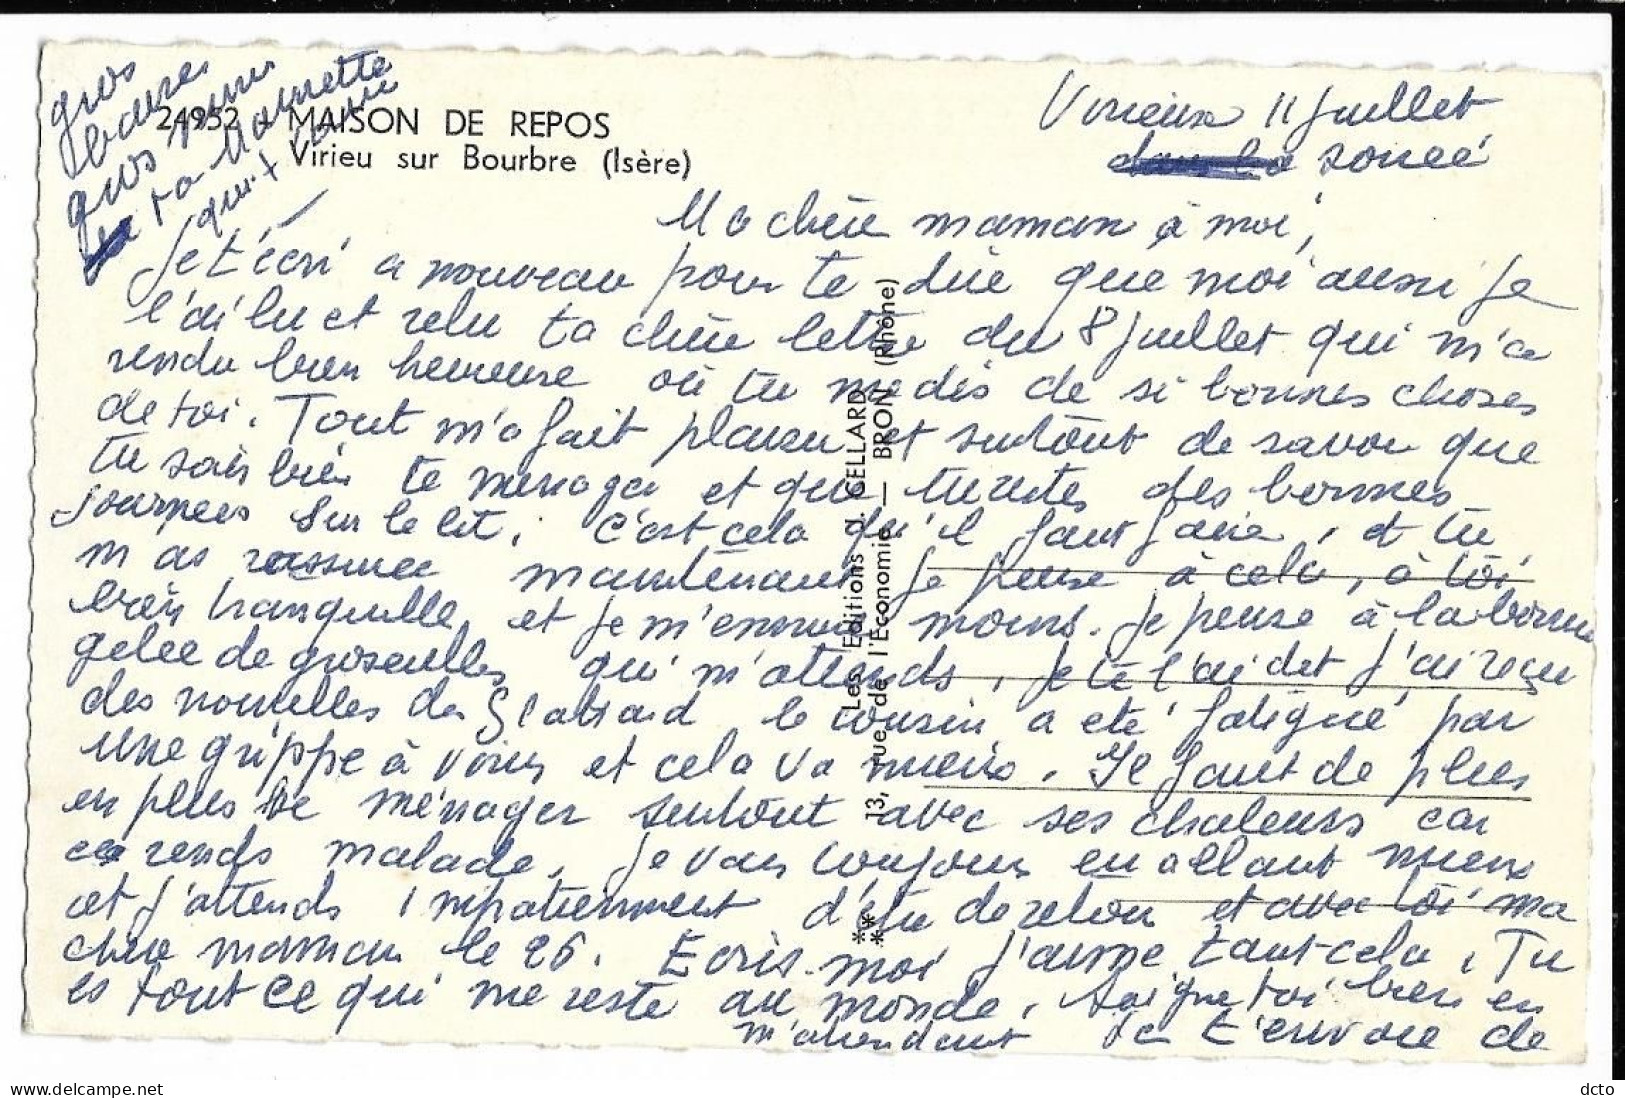 24952 - MAISON DE REPOS
Virieu sur Bourbre (Isère)
Virieux 11 Juillet
soireé
Ma chère maman à moi,
Je t'écri a nouveau pour te dire que moi aussi je
l'ai lu et relu ta chère lettre du 8 Juillet qui m'a
rendu bien heureuse où tu me dis de si bonnes choses
de toi. Tout m'a fait plaisir et surtout de savoir que
tu sais bien te menager et que tu restes des bonnes
journees sur le lit, c'est cela qu'il faut faire, et tu
m'as rassuree maintenant je pense à cela, à toi
bien tranquille, et je m'ennuie moins. Je pense à la bonne
gelee de groseilles qui m'attends, je te l'ai dit j'ai reçu
des nouvelles de le cousin a eté fatigué par
une grippe à virus et cela va mieux. Il faut de plus
en plus se ménager surtout avec ses chaleurs car
ca rends malade. Je vais toujours en allant mieux
et j'attends impatiemment d'être de retour et avec toi ma
chère maman le 26. Ecris-moi j'aime tant cela, Tu
es tout ce qui me reste au monde. Soigne toi bien en
m'attendant Je t'envoie de
gros
gros
ta Mounette
qui t'aime
Les Editions J. CELLARD
13, rue de l'Economie — BRON (Rhône)
**